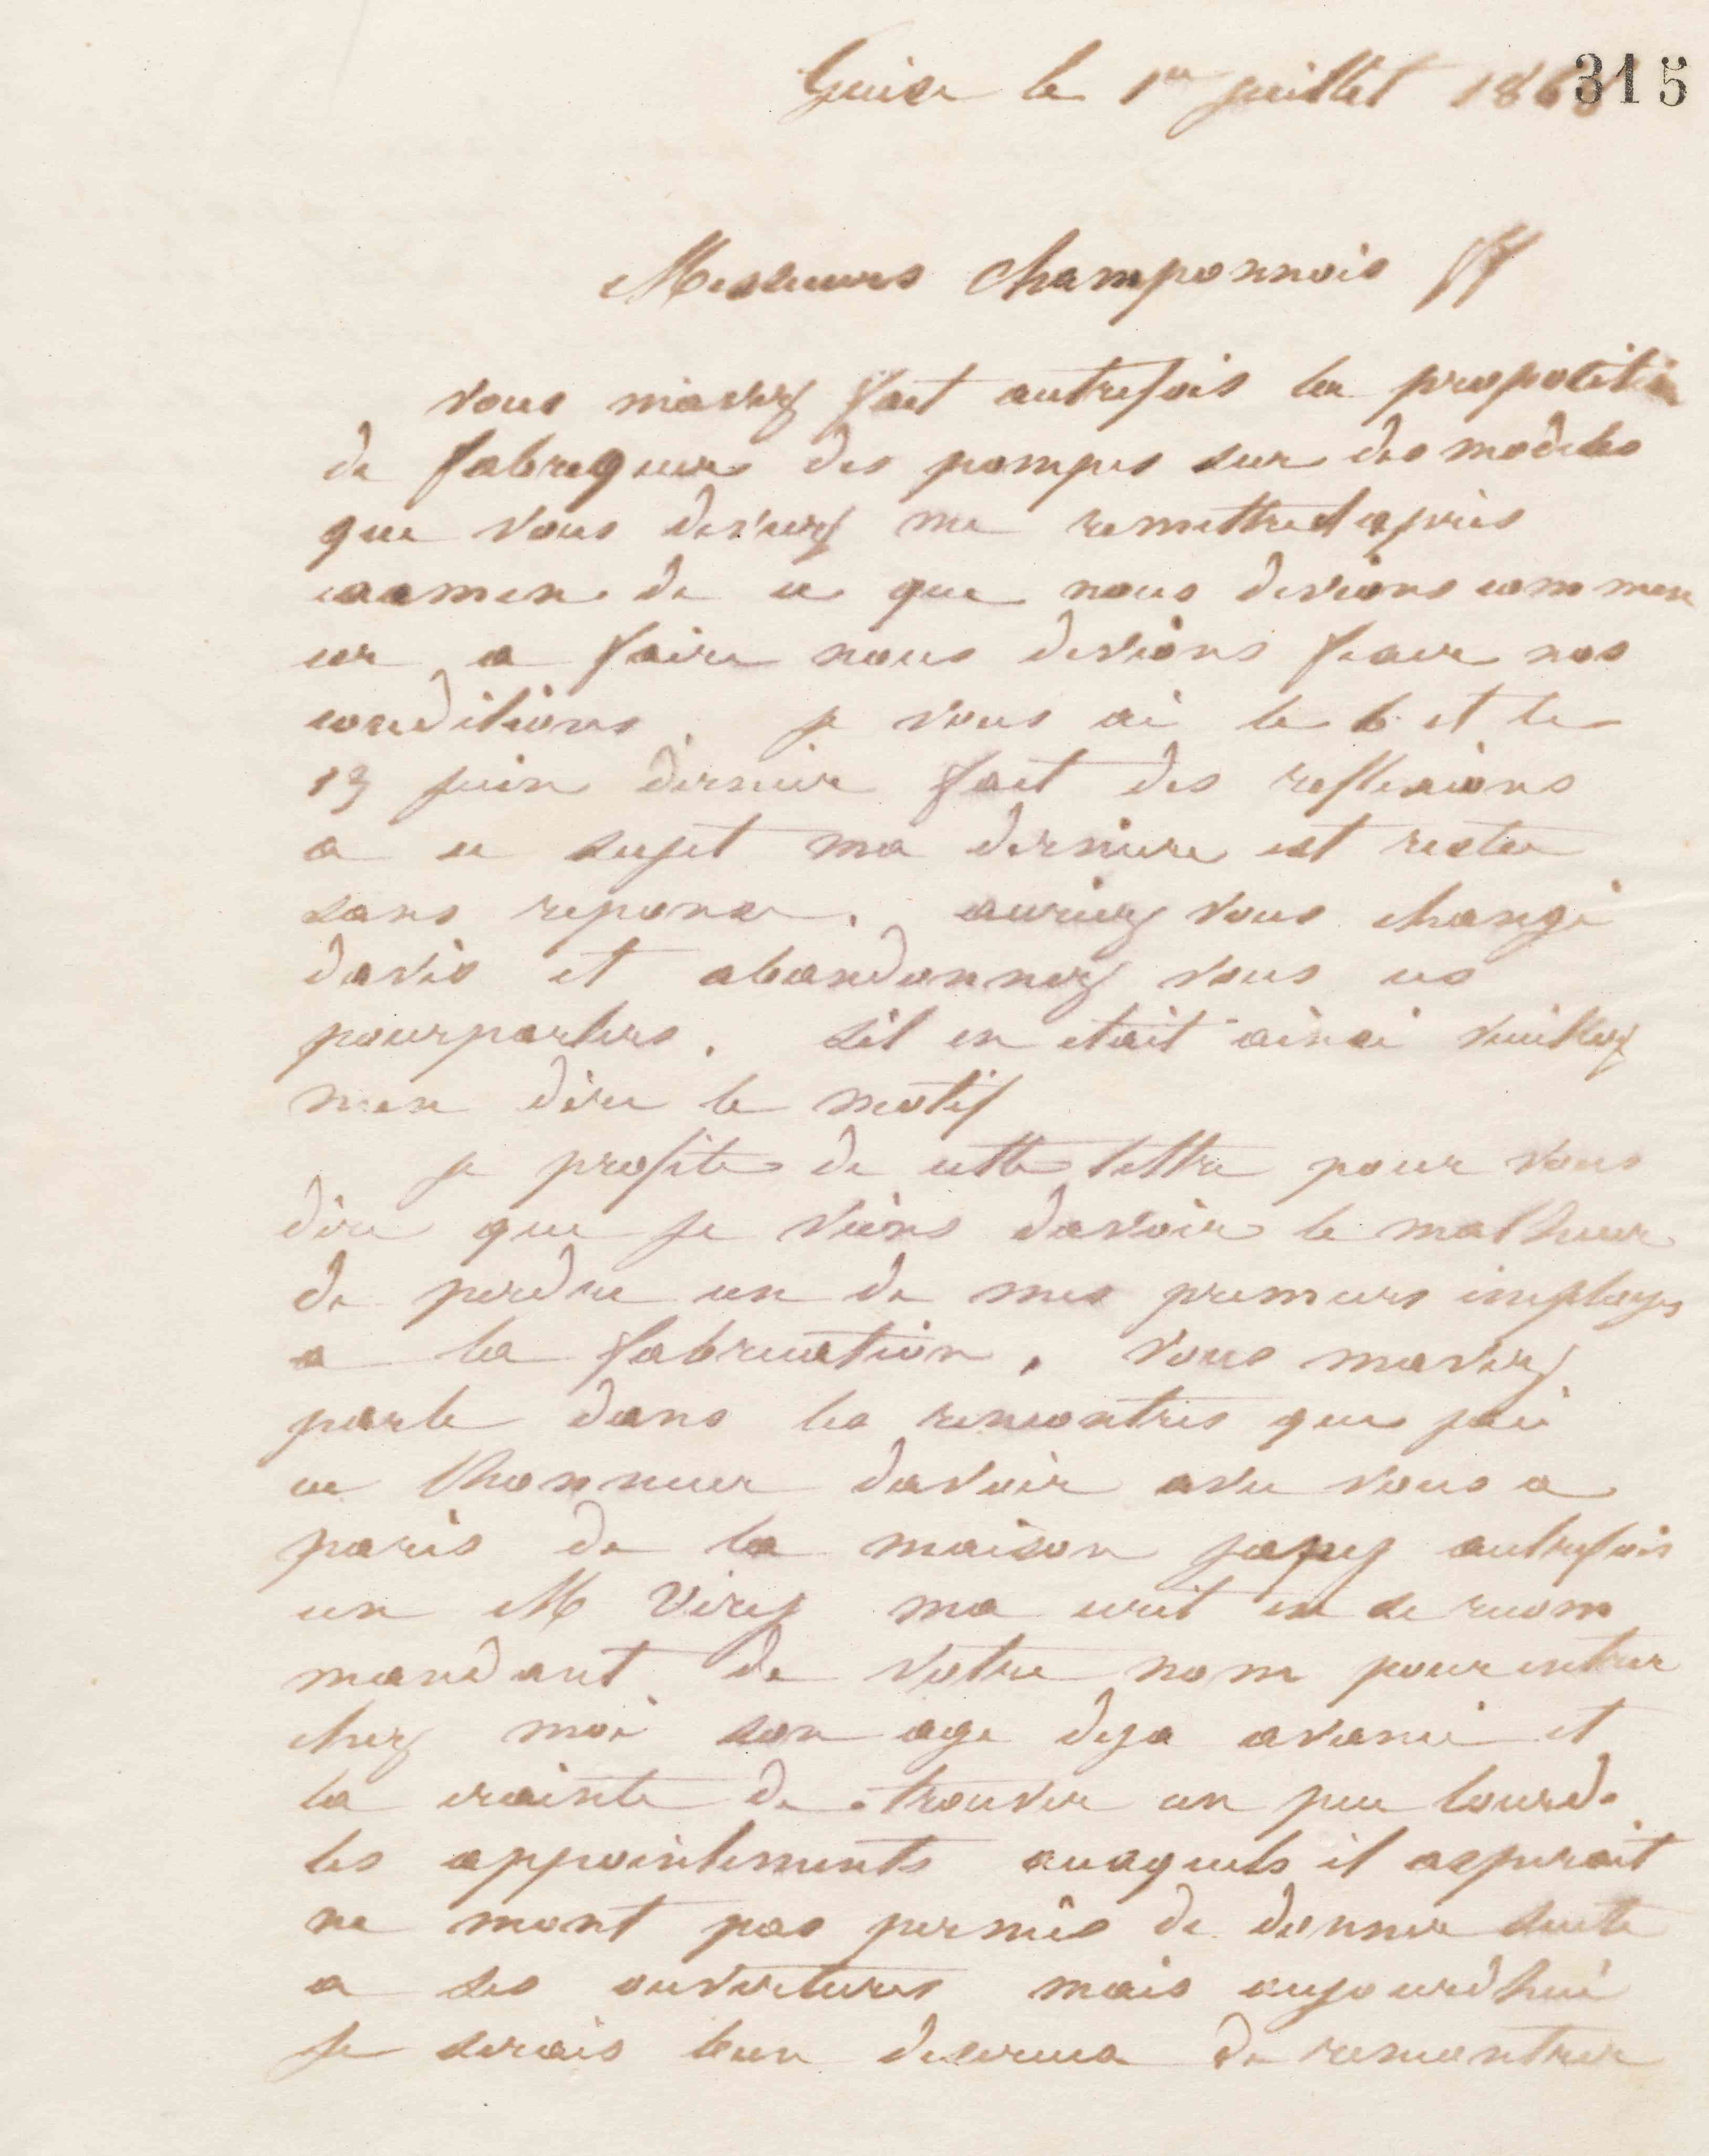 Guise le 1er juillet 186
315
Messieurs Champonnois ff
vous mavez fait autrefois la proposition
de fabriquer des pompes sur des modeles
que vous deviez me remettre d apries
examen de ce que nous devions commen
cer a faire nous devions fixer nos
conditions. je vous ai le 6 et le
19 juin dernier fait des reflexions
a ce sujet ma derniere est restee
sans reponse. auriez vous changé
davis et abandonnez vous ces
pourparlers. sil en etait ainsi veuillez
men dire le motif
je profite de cette lettre pour vous
dire que je viens davoir le malheur
de perdre un de mes premiers employes
a la fabrication. vous mavez
parle dans les rencontres que jai
eu lhonneur davoir avec vous a
paris de la maison japy autrefois
un M Virey ma ecrit en se recom
mandant de votre nom pour entrer
chez moi son age deja avancé et
la crainte de trouver un peu lourds
les appointements auxquels il aspirait
ne mont pas permis de donner suite
a ses ouvertures mais aujourdhui
je serais bien desireux de rencontrer